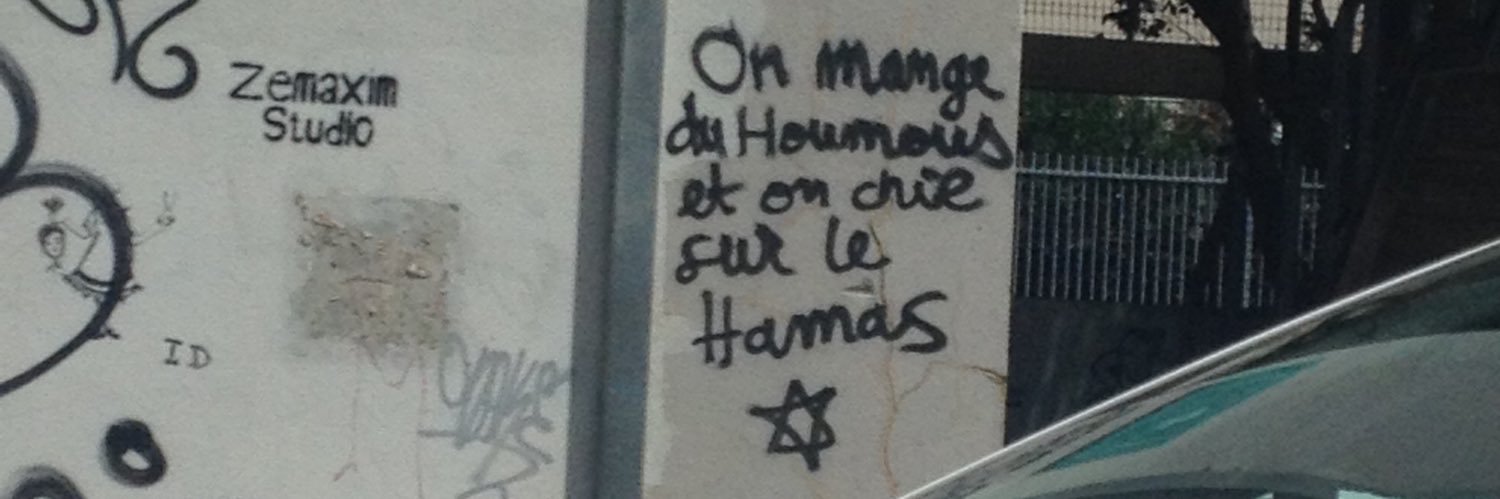 Zemaxim
Studio
ID
On mange
du Houmous
et on chie
sur le
Hamas